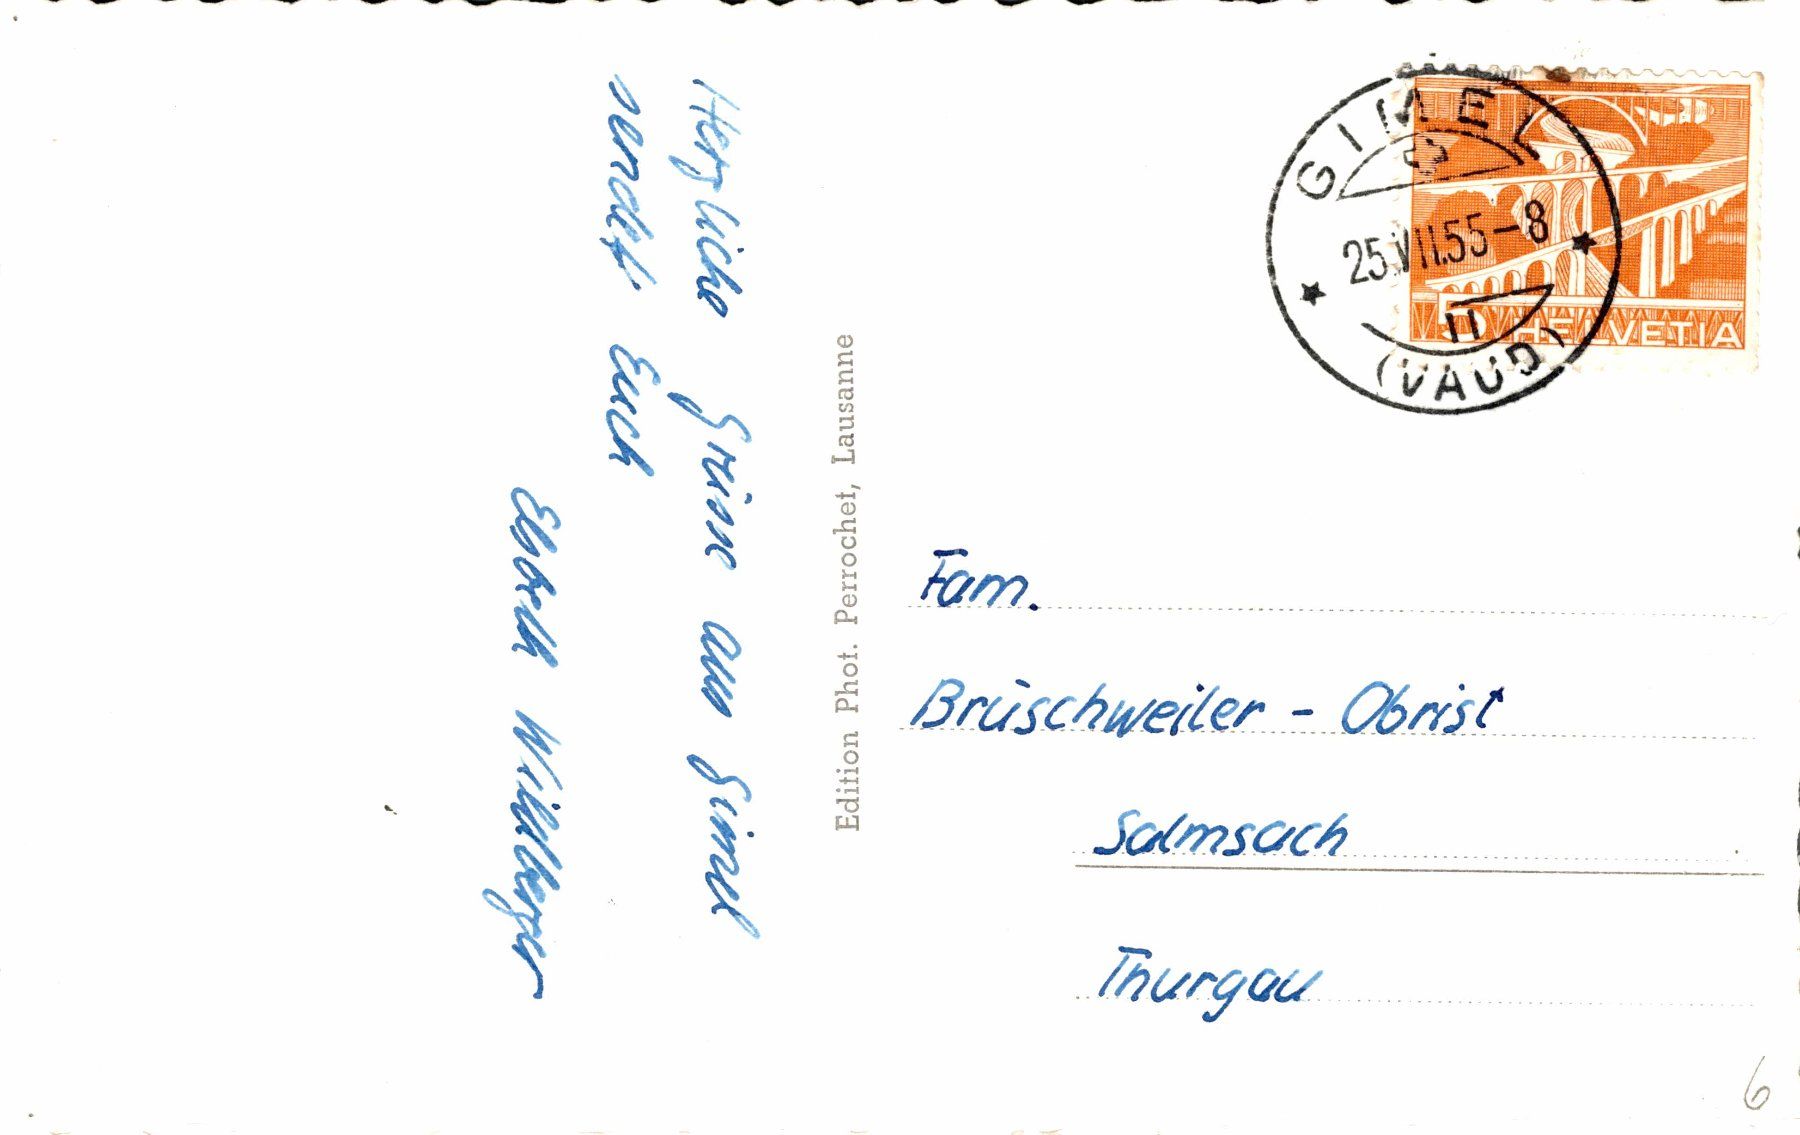 Herzliche Grüsse aus Gimel
sendet Euch
Elsbeth
Edition Phot. Perrochet, Lausanne
GIMEL
25.VII.55-8
(VAUD)
5 HELVETIA
Fam.
Brüschweiler - Obrist
Salmsach
Thurgau
6